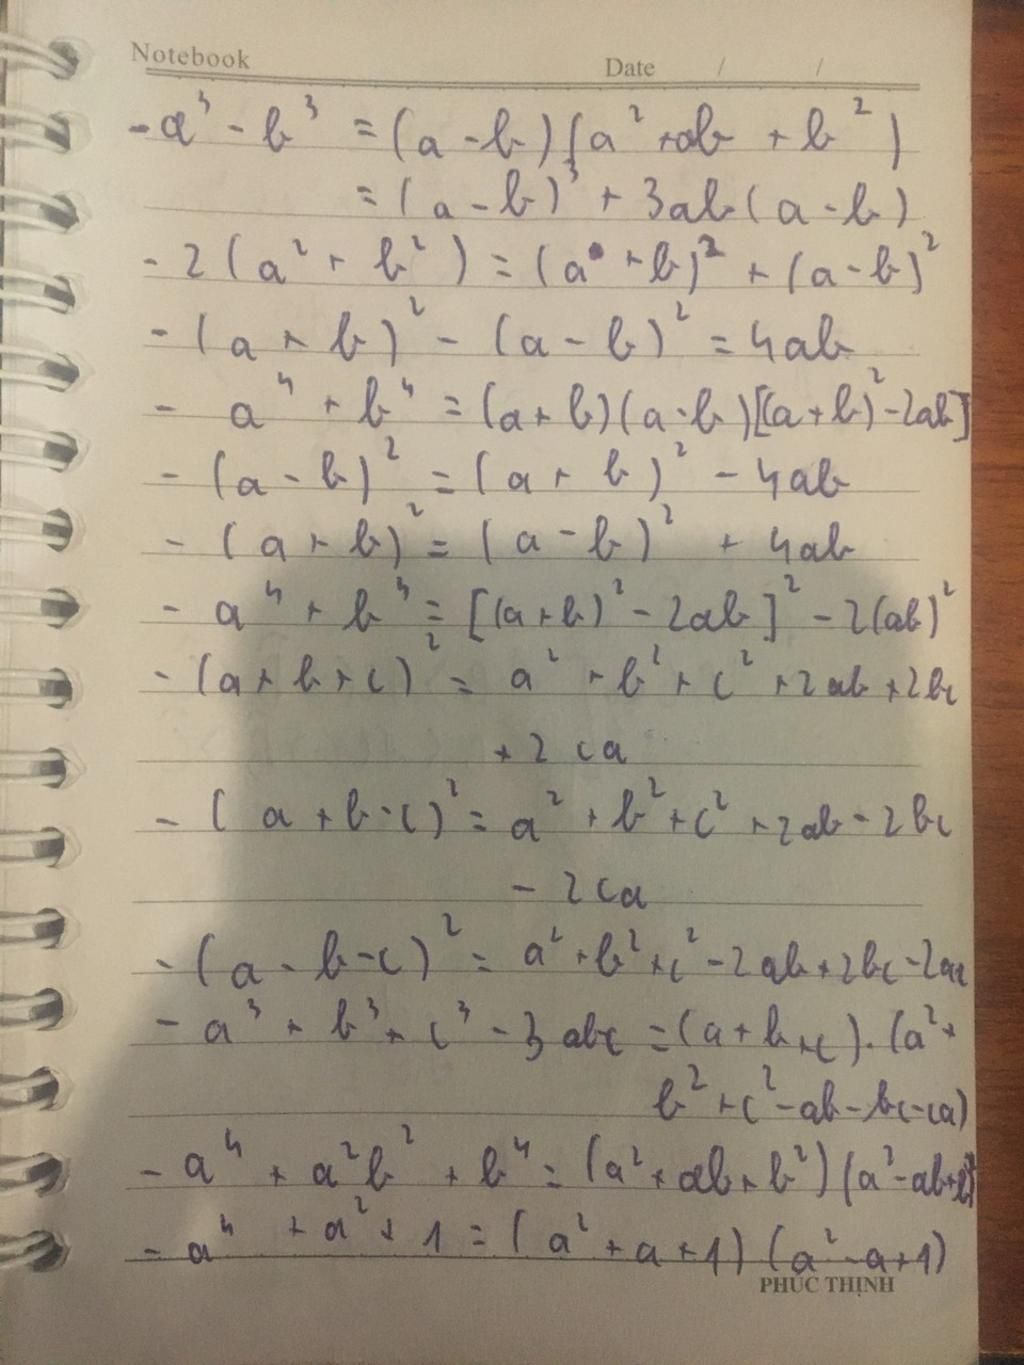 Notebook
Date / /
- a³ - b³ = (a - b)(a² + ab + b²)
= (a - b)³ + 3ab(a - b)
- 2(a² + b²) = (a + b)² + (a - b)²
- (a + b)² - (a - b)² = 4ab
- a⁴ + b⁴ = (a + b)(a - b)[(a + b)² - 2ab]
- (a - b)² = (a + b)² - 4ab
- (a + b)² = (a - b)² + 4ab
- a⁴ + b⁴ = [(a + b)² - 2ab]² - 2(ab)²
- (a + b + c)² = a² + b² + c² + 2ab + 2bc
+ 2ca
- (a + b - c)² = a² + b² + c² + 2ab - 2bc
- 2ca
- (a - b - c)² = a² + b² + c² - 2ab + 2bc - 2ac
- a³ + b³ + c³ - 3abc = (a + b + c).(a² +
b² + c² - ab - bc - ca)
- a⁴ + a²b² + b⁴ = (a² + ab + b²)(a² - ab + b²)
- a⁴ + a² + 1 = (a² + a + 1)(a² - a + 1)
PHÚC THỊNH